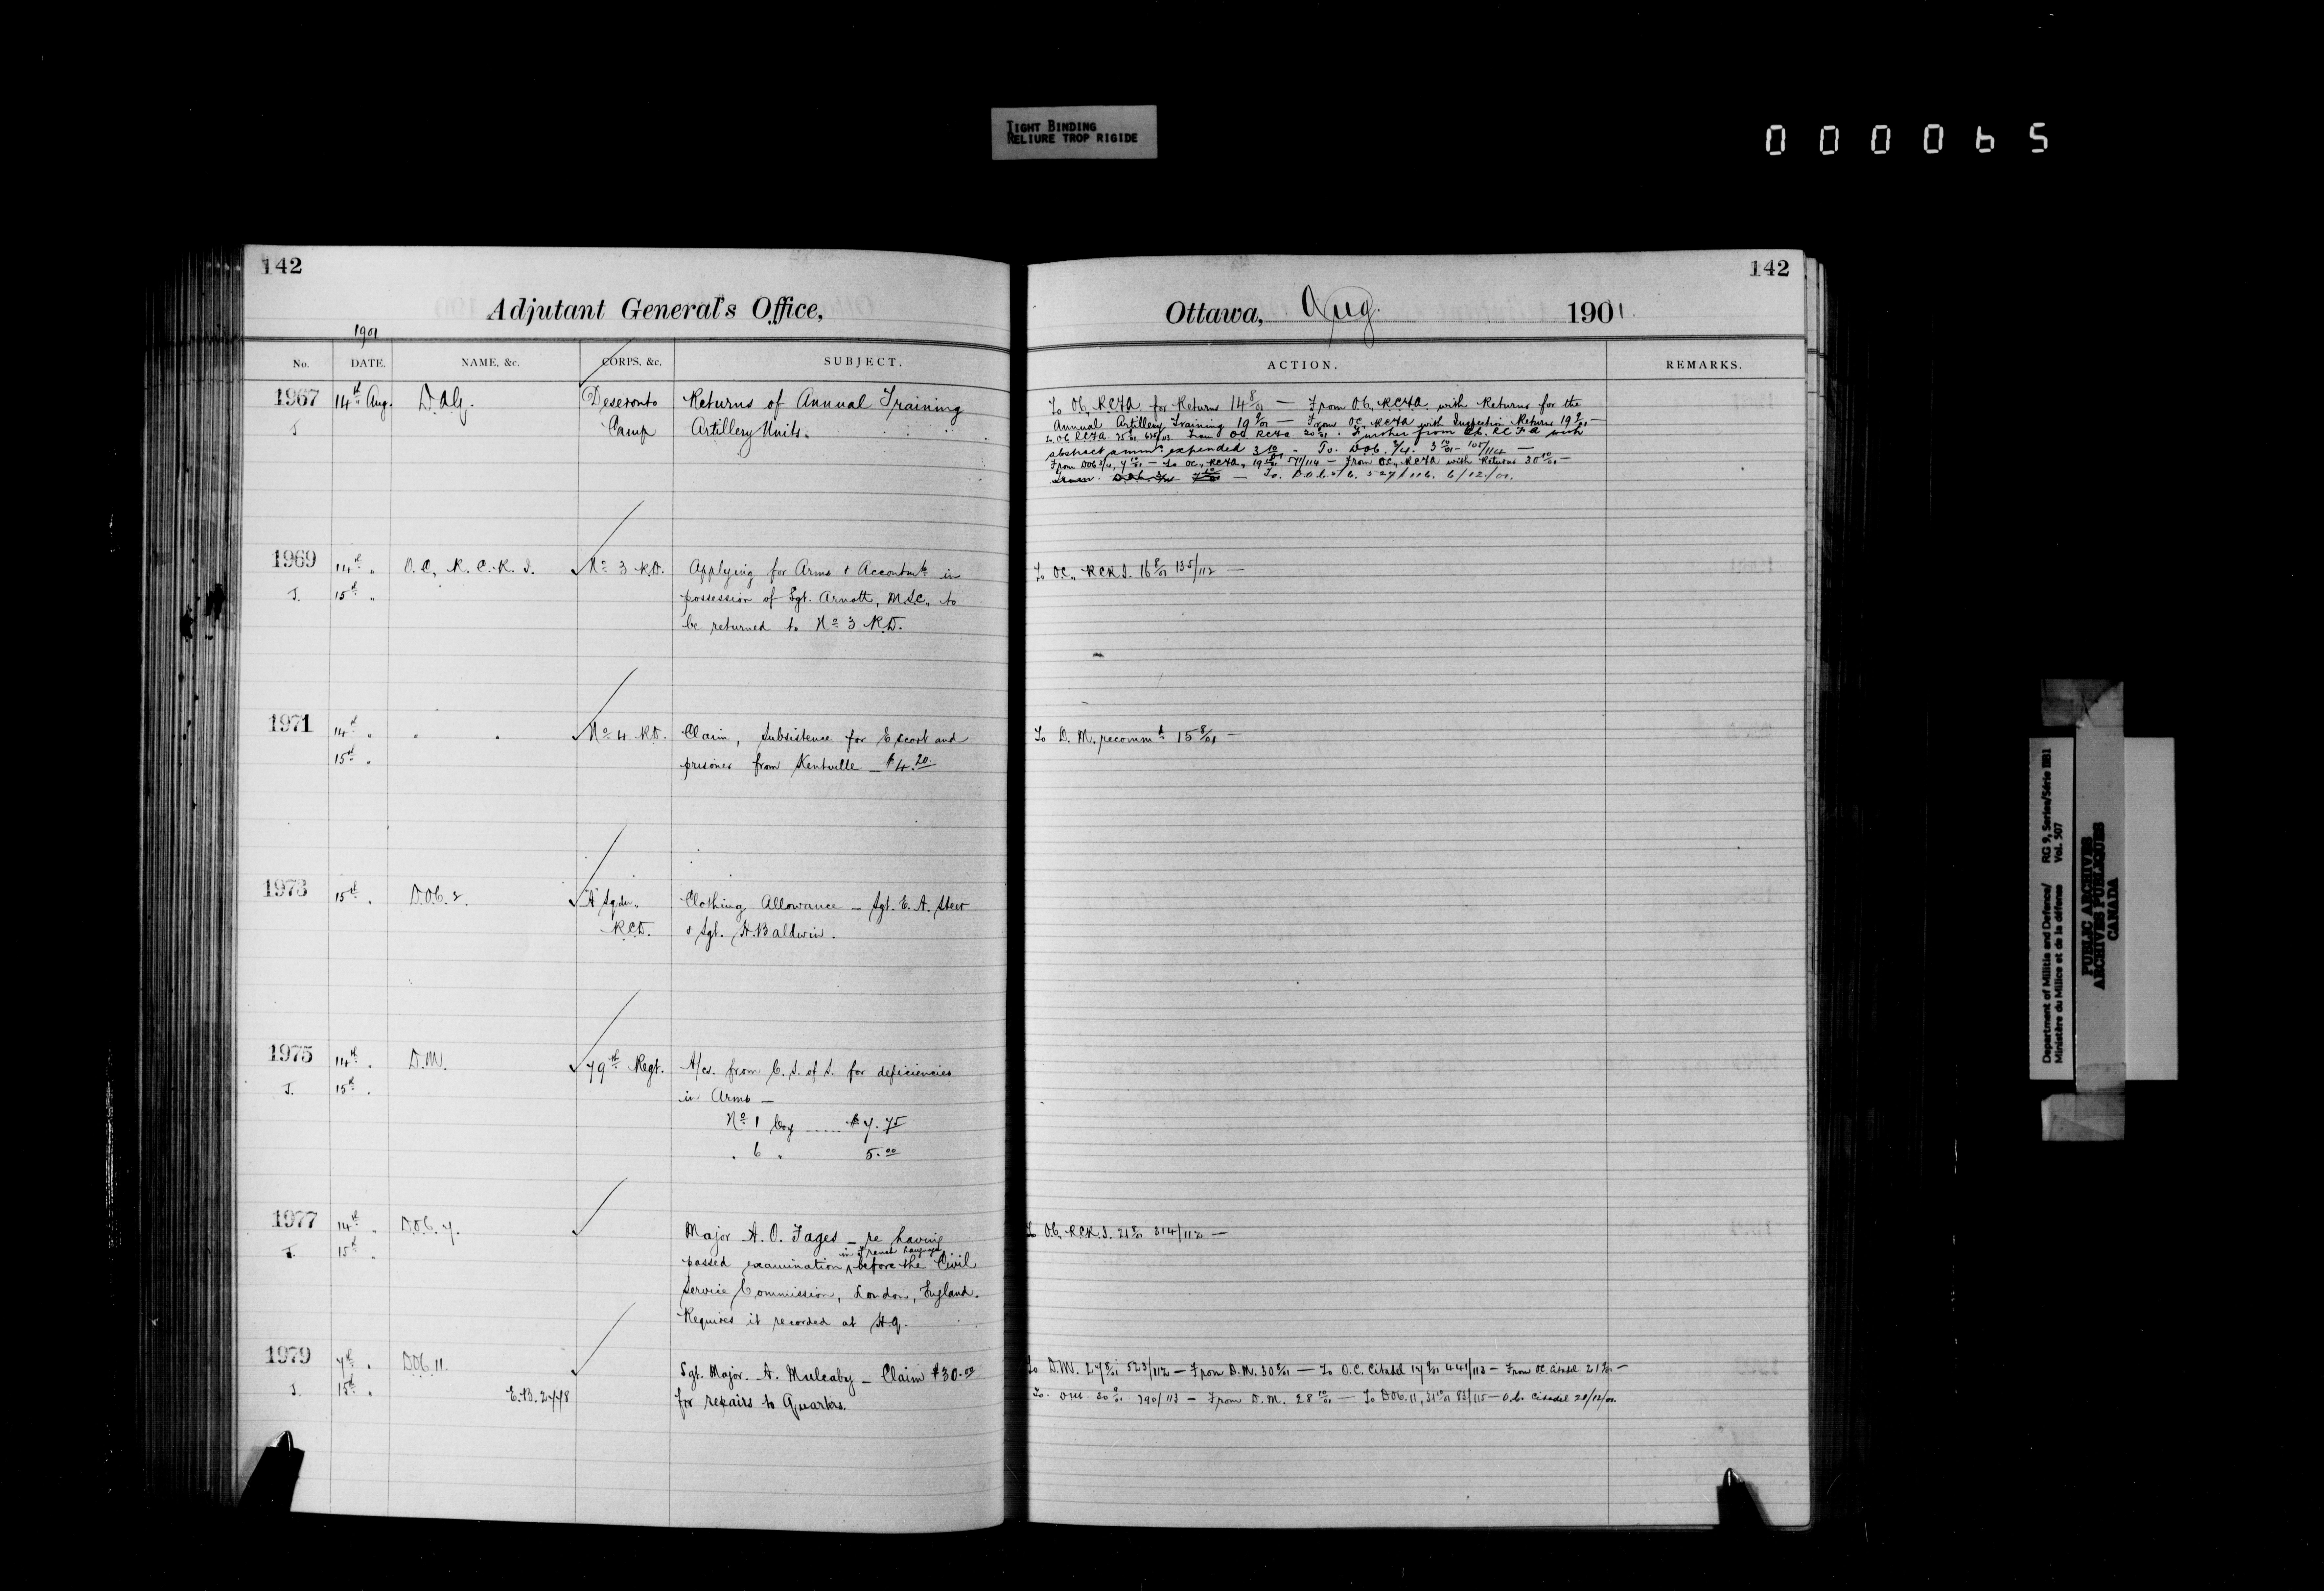 TIGHT BINDING
RELIURE TROP RIGIDE
000065
142
Adjutant General's Office,
1901
No. DATE. NAME, &c. CORPS, &c. SUBJECT.
1967 14th Aug. D.A.G. Deseronto Returns of Annual Training
J Camp Artillery Units.
1969 14th " O.C. R.C.R.I. No 3 R.D. Applying for Arms & Accoutmts in
J. 15th " possession of Sgt. Arnott, M.S.C., to
be returned to No 3 R.D.
1971 14th " " " No 4 R.D. Claim, Subsistence for Escort and
15th " prisoner from Kentville _ $4.20
1973 15th " D.O.C. 2. "A" Sqdn. Clothing Allowance _ Sgt. E. A. Steer
R.C.D. & Sgt. H. Baldwin.
1975 14th " D.M. 79th Regt. A/cs. from C. S. of S. for deficiencies
J. 15th " in Arms _
No 1 Coy ..... $7.75
" 6 " 5.00
1977 14th " D.O.C. 7. Major A. O. Fages _ re having
J. 15th " passed examination in French Language before the Civil
Service Commission, London, England.
Requires it recorded at H.Q.
1979 7th " D.O.C. 11. Sgt. Major A. Mulcahy _ Claim $30.00
J. 15th " E.B. 2778 for repairs to Quarters.
142
Ottawa, Aug. 1901.
ACTION. REMARKS.
To OC, RCFA for Returns 14 8/01 — From O.C. RCFA with Returns for the
Annual Artillery Training 19 8/01 — From OC RCFA with Inspection Returns 19 9/01 —
Further from O.C. RCFA with
abstract ammn expended 3 10/01 - To DOC 3/4. 3 10/01 105/114 —
From DOC 3/4, 4 10/01 — To OC, RCFA, 19 10/01 571/114 — From OC, RCFA with Returns 30 10/01 —
To D.O.C. 527/116. 6/12/01.
To OC., RCR.I. 16 8/01 135/112 —
To D.M. recommd 15 8/01 —
To OC, RCR.I. 21 8/01 314/112 —
To D.M. 27 8/01 523/112 — From D.M. 30 8/01 — To O.C. Citadel 17 9/01 441/113 — From OC Citadel 21 9/01 —
To 30 9/01 790/113 — From D.M. 28 10/01 — To DOC. 11, 31 10/01 83/115 — O.C. Citadel 20/12/01.
Department of Militia and Defence/ RG 9, Series/Série IIB1
Ministère du Milice et de la défense Vol. 507
PUBLIC ARCHIVES
ARCHIVES PUBLIQUES
CANADA